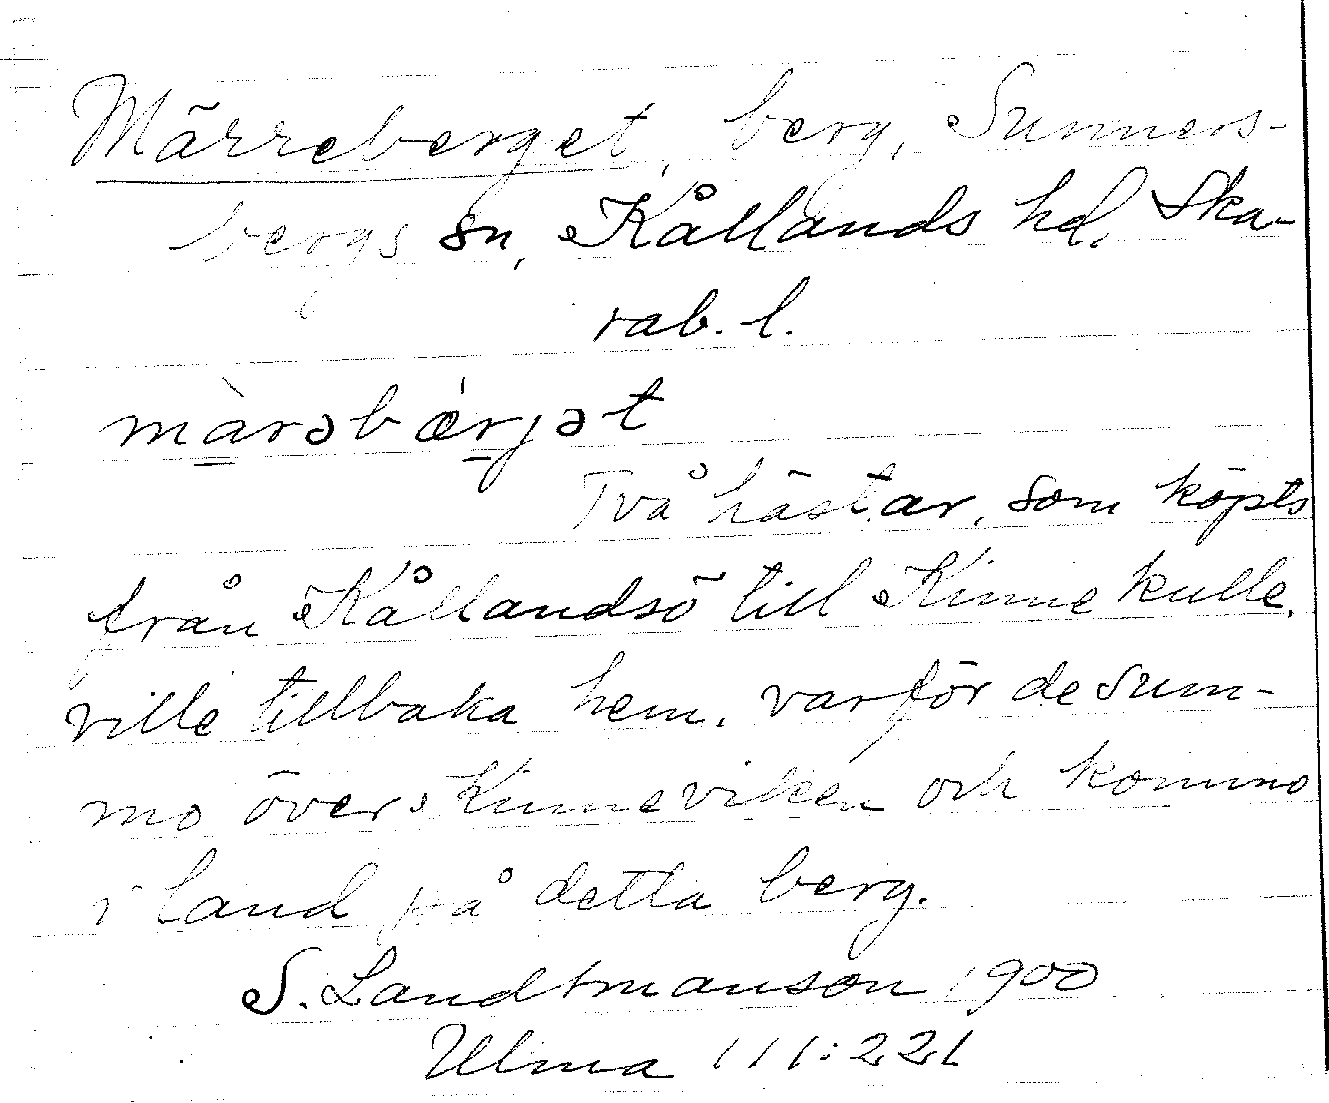 Märreberget, berg, Sunners-
bergs sn, Kållands hd, Ska-
rab. l.
mà̱rəbæ̀ṟjət
Två hästar, som köpts
från Kållandsö till Kinnekulle,
ville tillbaka hem, varför de sum-
mo över Kinneviken och kommo
i land på detta berg.
S. Landtmanson 1900
Ulma 111:221